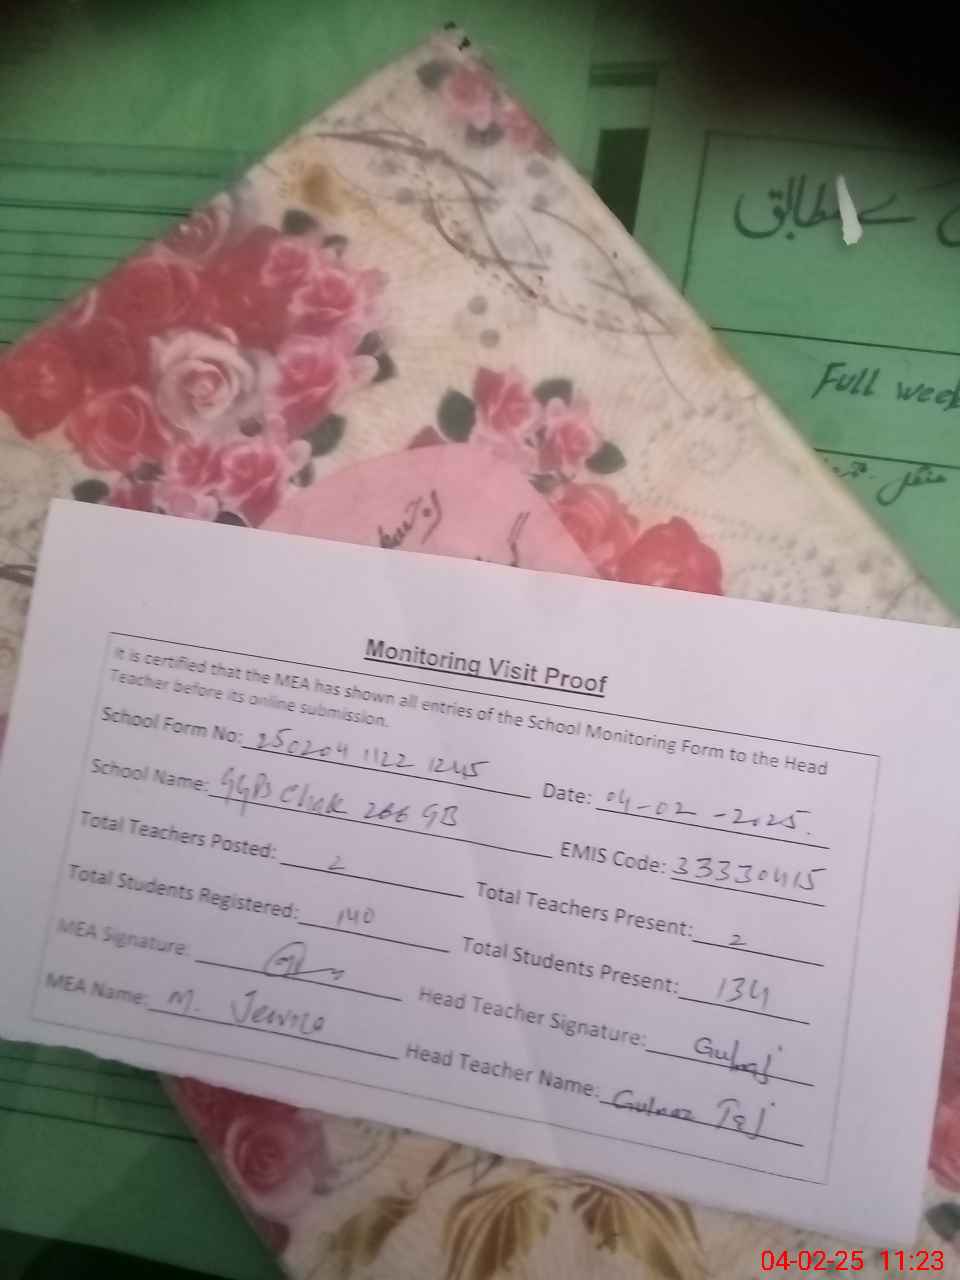 کے مطابق
Full week
Monitoring Visit Proof
It is certified that the MEA has shown all entries of the School Monitoring Form to the Head
Teacher before its online submission.
School Form No: 250204 1122 1245 Date: 04-02-2025.
School Name: GGPS Chak 266 GB EMIS Code: 33330415
Total Teachers Posted: 2 Total Teachers Present: 2
Total Students Registered: 140 Total Students Present: 134
MEA Signature: Head Teacher Signature: Gulnaz
MEA Name: M. Head Teacher Name: Gulnaz Taj
04-02-25 11:23